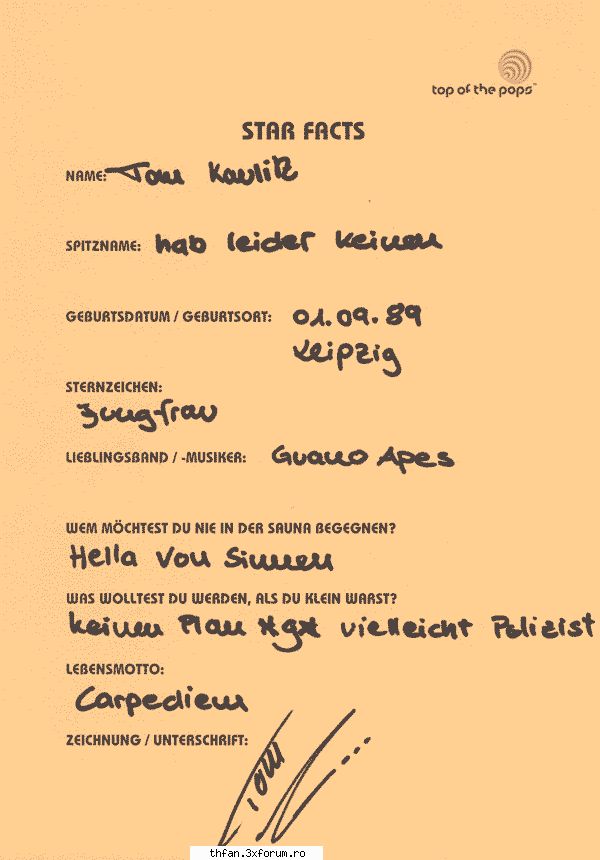 top of the pops™
STAR FACTS
NAME: Tom Kaulitz
SPITZNAME: hab leider keinen
GEBURTSDATUM / GEBURTSORT: 01.09.89
Leipzig
STERNZEICHEN:
Jungfrau
LIEBLINGSBAND / -MUSIKER: Guano Apes
WEM MÖCHTEST DU NIE IN DER SAUNA BEGEGNEN?
Hella von Sinnen
WAS WOLLTEST DU WERDEN, ALS DU KLEIN WARST?
keinen Plan *g* vielleicht Polizist
LEBENSMOTTO:
Carpediem
ZEICHNUNG / UNTERSCHRIFT:
Tom
thfan.3xforum.ro